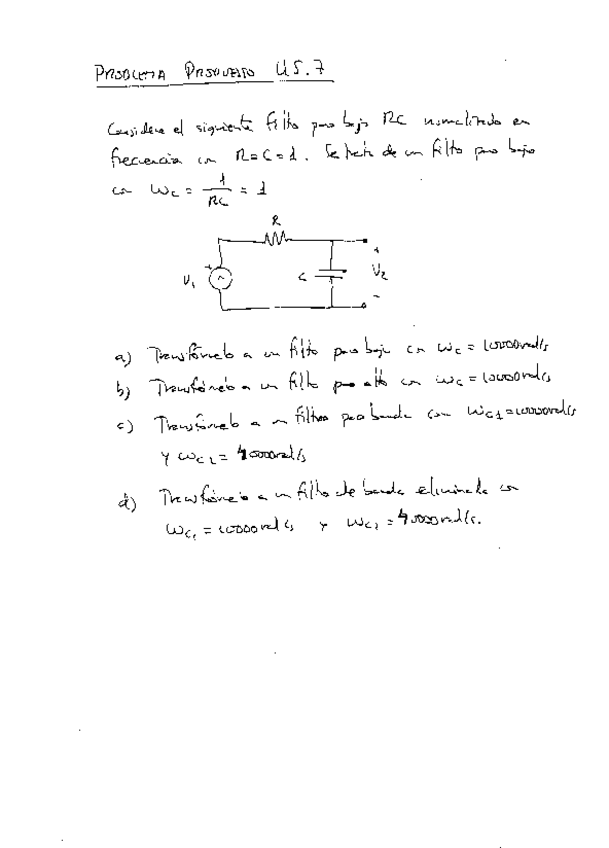 PROBLEMA PROPUESTO U5.7
Considere el siguiente filtro paso bajo RC normalizado en
frecuencia con R=C=1. Se trata de un filtro paso bajo
con Wc = 1/RC = 1
R
V1 + ~ C + V2 -
a) Transfórmelo a un filtro paso bajo con Wc = 10000rad/s
b) Transfórmelo a un filtro paso alto con Wc = 10000rad/s
c) Transfórmelo a un filtro paso banda con Wc1=10000rad/s
y Wc2 = 40000rad/s
d) Transfórmelo a un filtro de banda eliminada con
Wc1 = 10000rad/s y Wc2 = 40000rad/s.